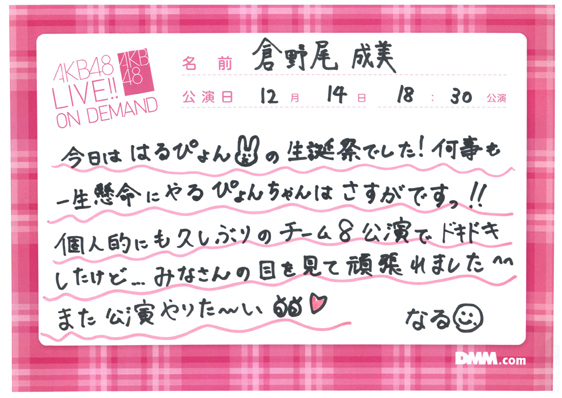 AKB48
LIVE!!
ON DEMAND
AKB
48
名前 倉野尾 成美
公演日 12月 14日 18:30公演
今日は はるぴょん の 生誕祭でした! 何事も
一生懸命にやる ぴょんちゃんは さすがですっ!!
個人的にも久しぶりのチーム8公演で ドキドキ
したけど… みなさんの目を見て 頑張れました〜
また 公演 やりた〜い
なる
DMM.com